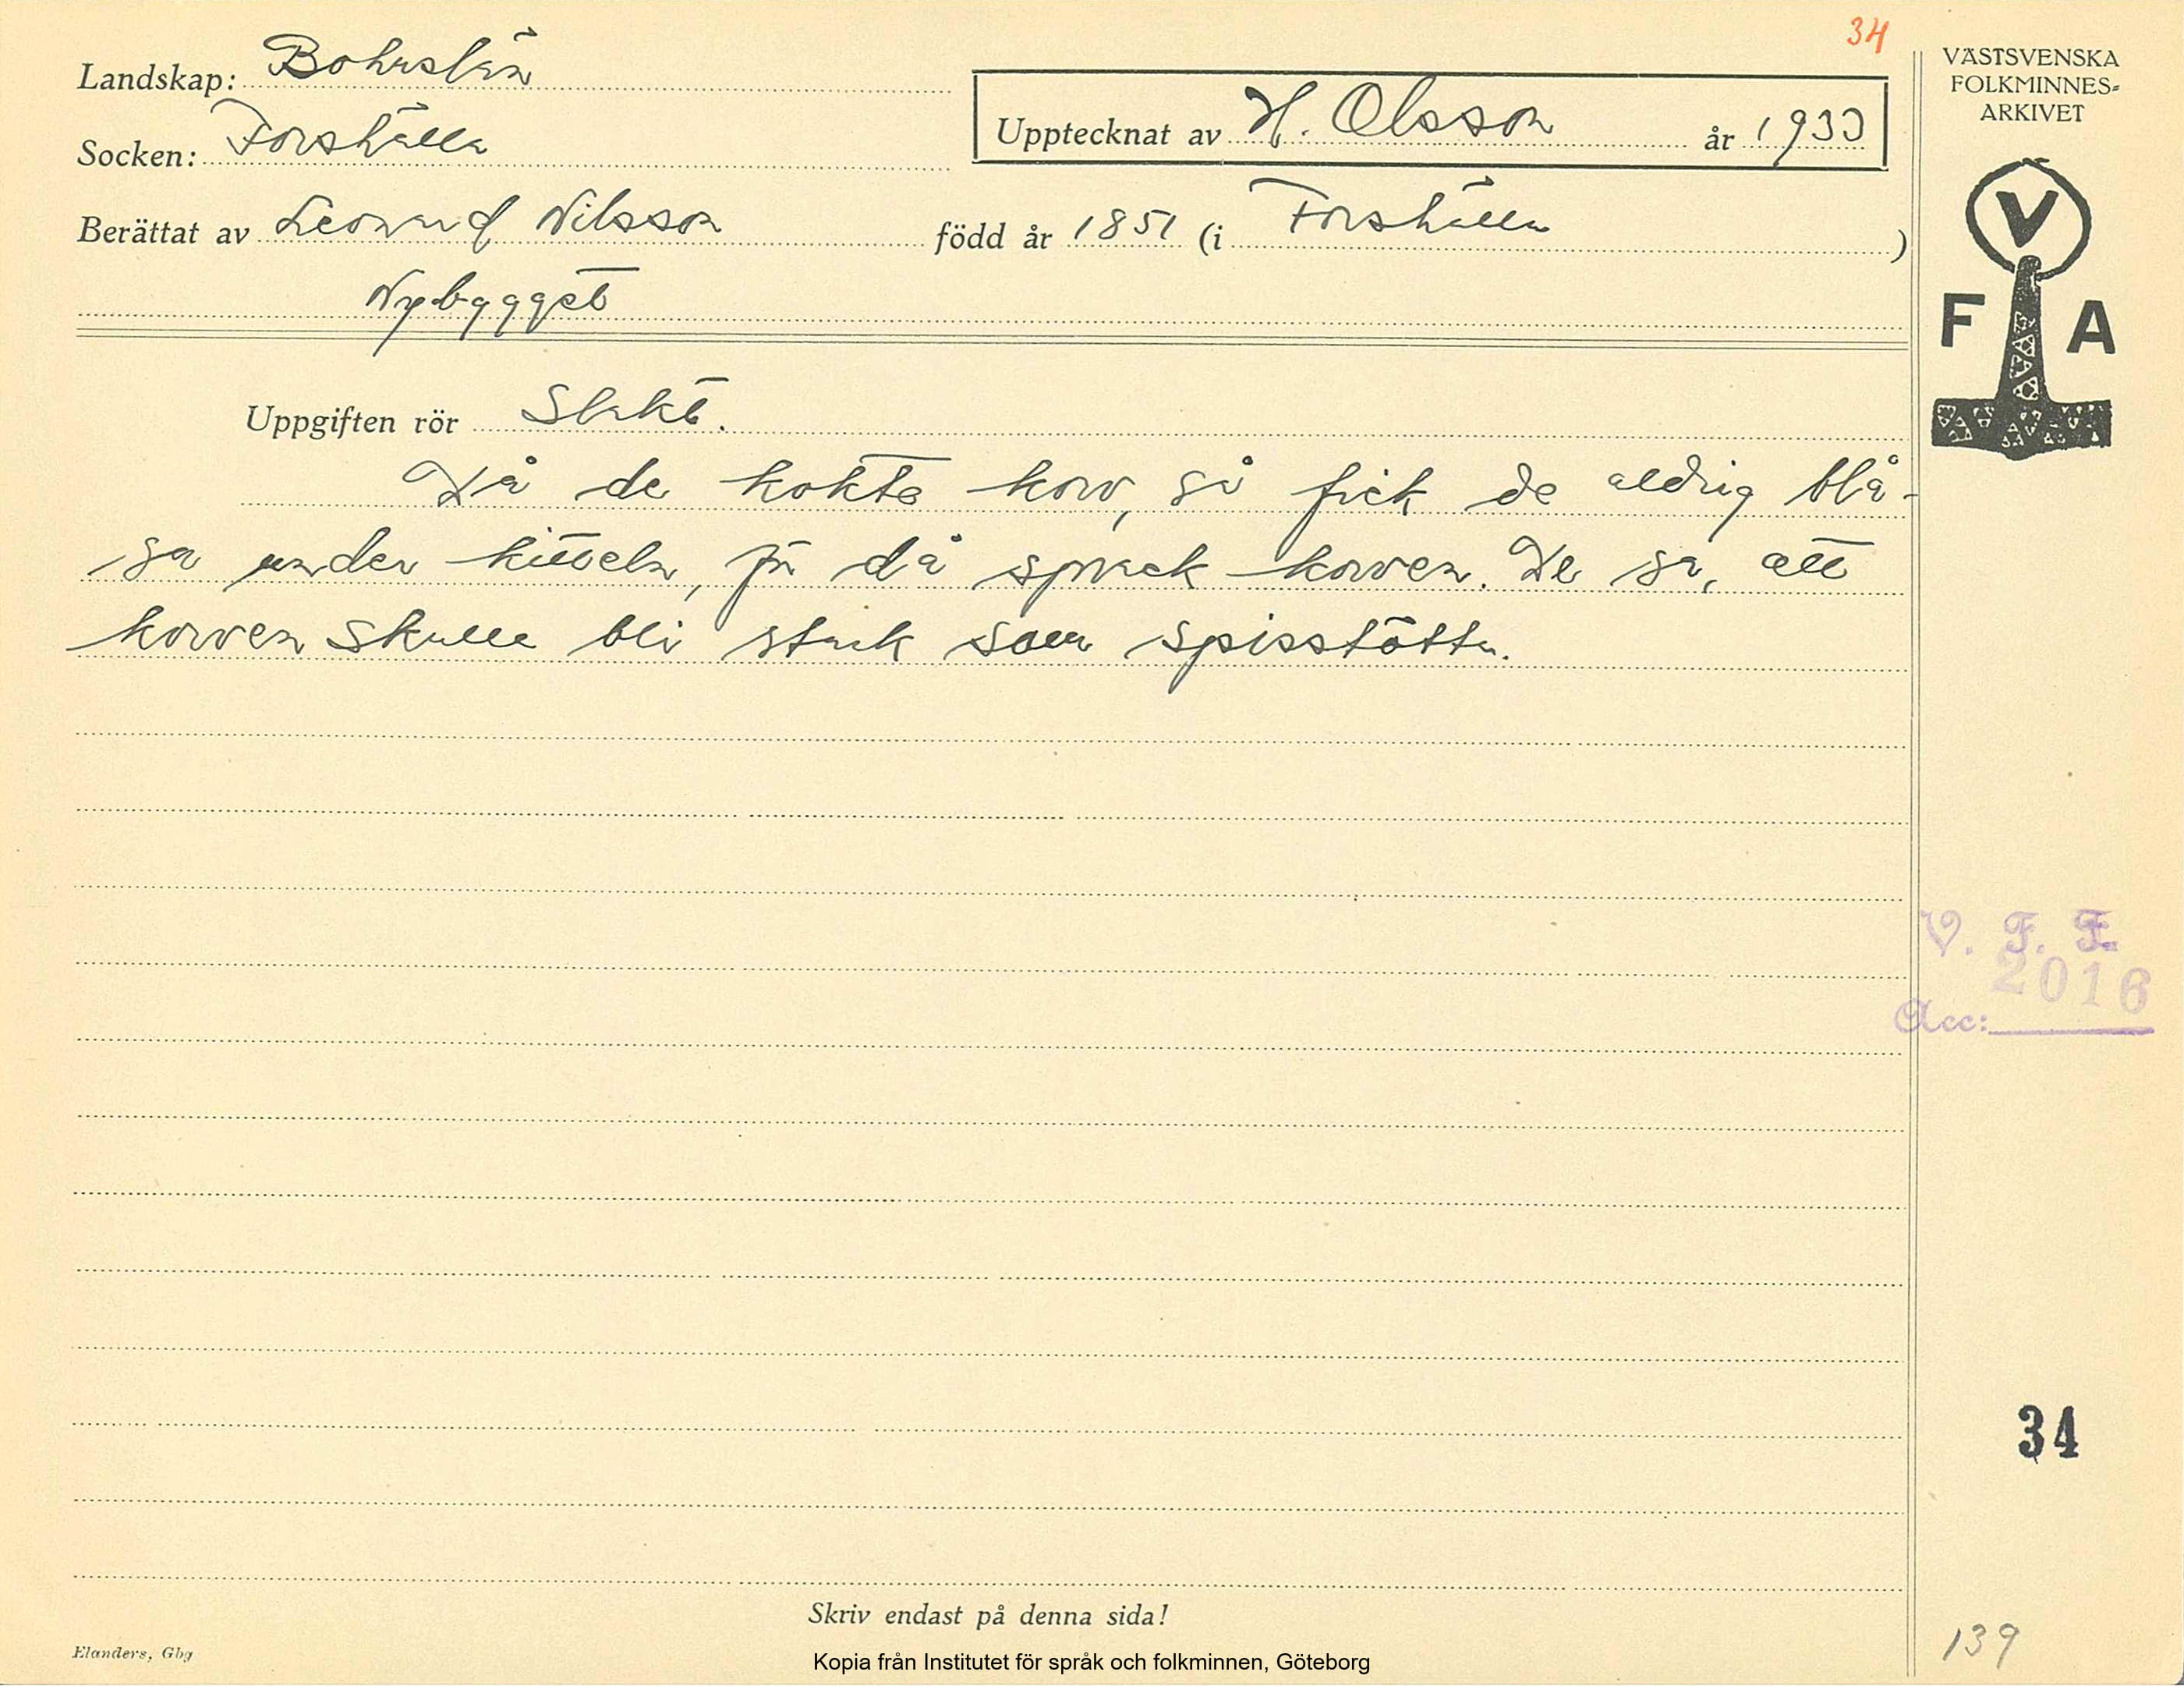 34
Landskap: Bohuslän
Socken: Forshälla
Upptecknat av H. Olsson år 1933
Berättat av Leonard Nilsson född år 1851 (i Forshälla )
Nybygget
VÄSTSVENSKA
FOLKMINNES-
ARKIVET
V
F A
Uppgiften rör Slakt.
Då de kokte korv, så fick de aldrig blå-
sa under kitteln, för då sprack korven. De sa, att
korven skulle bli stark som spisstötta.
V. F. F.
2016
Acc:
34
Skriv endast på denna sida!
Elanders, Gbg
139
Kopia från Institutet för språk och folkminnen, Göteborg